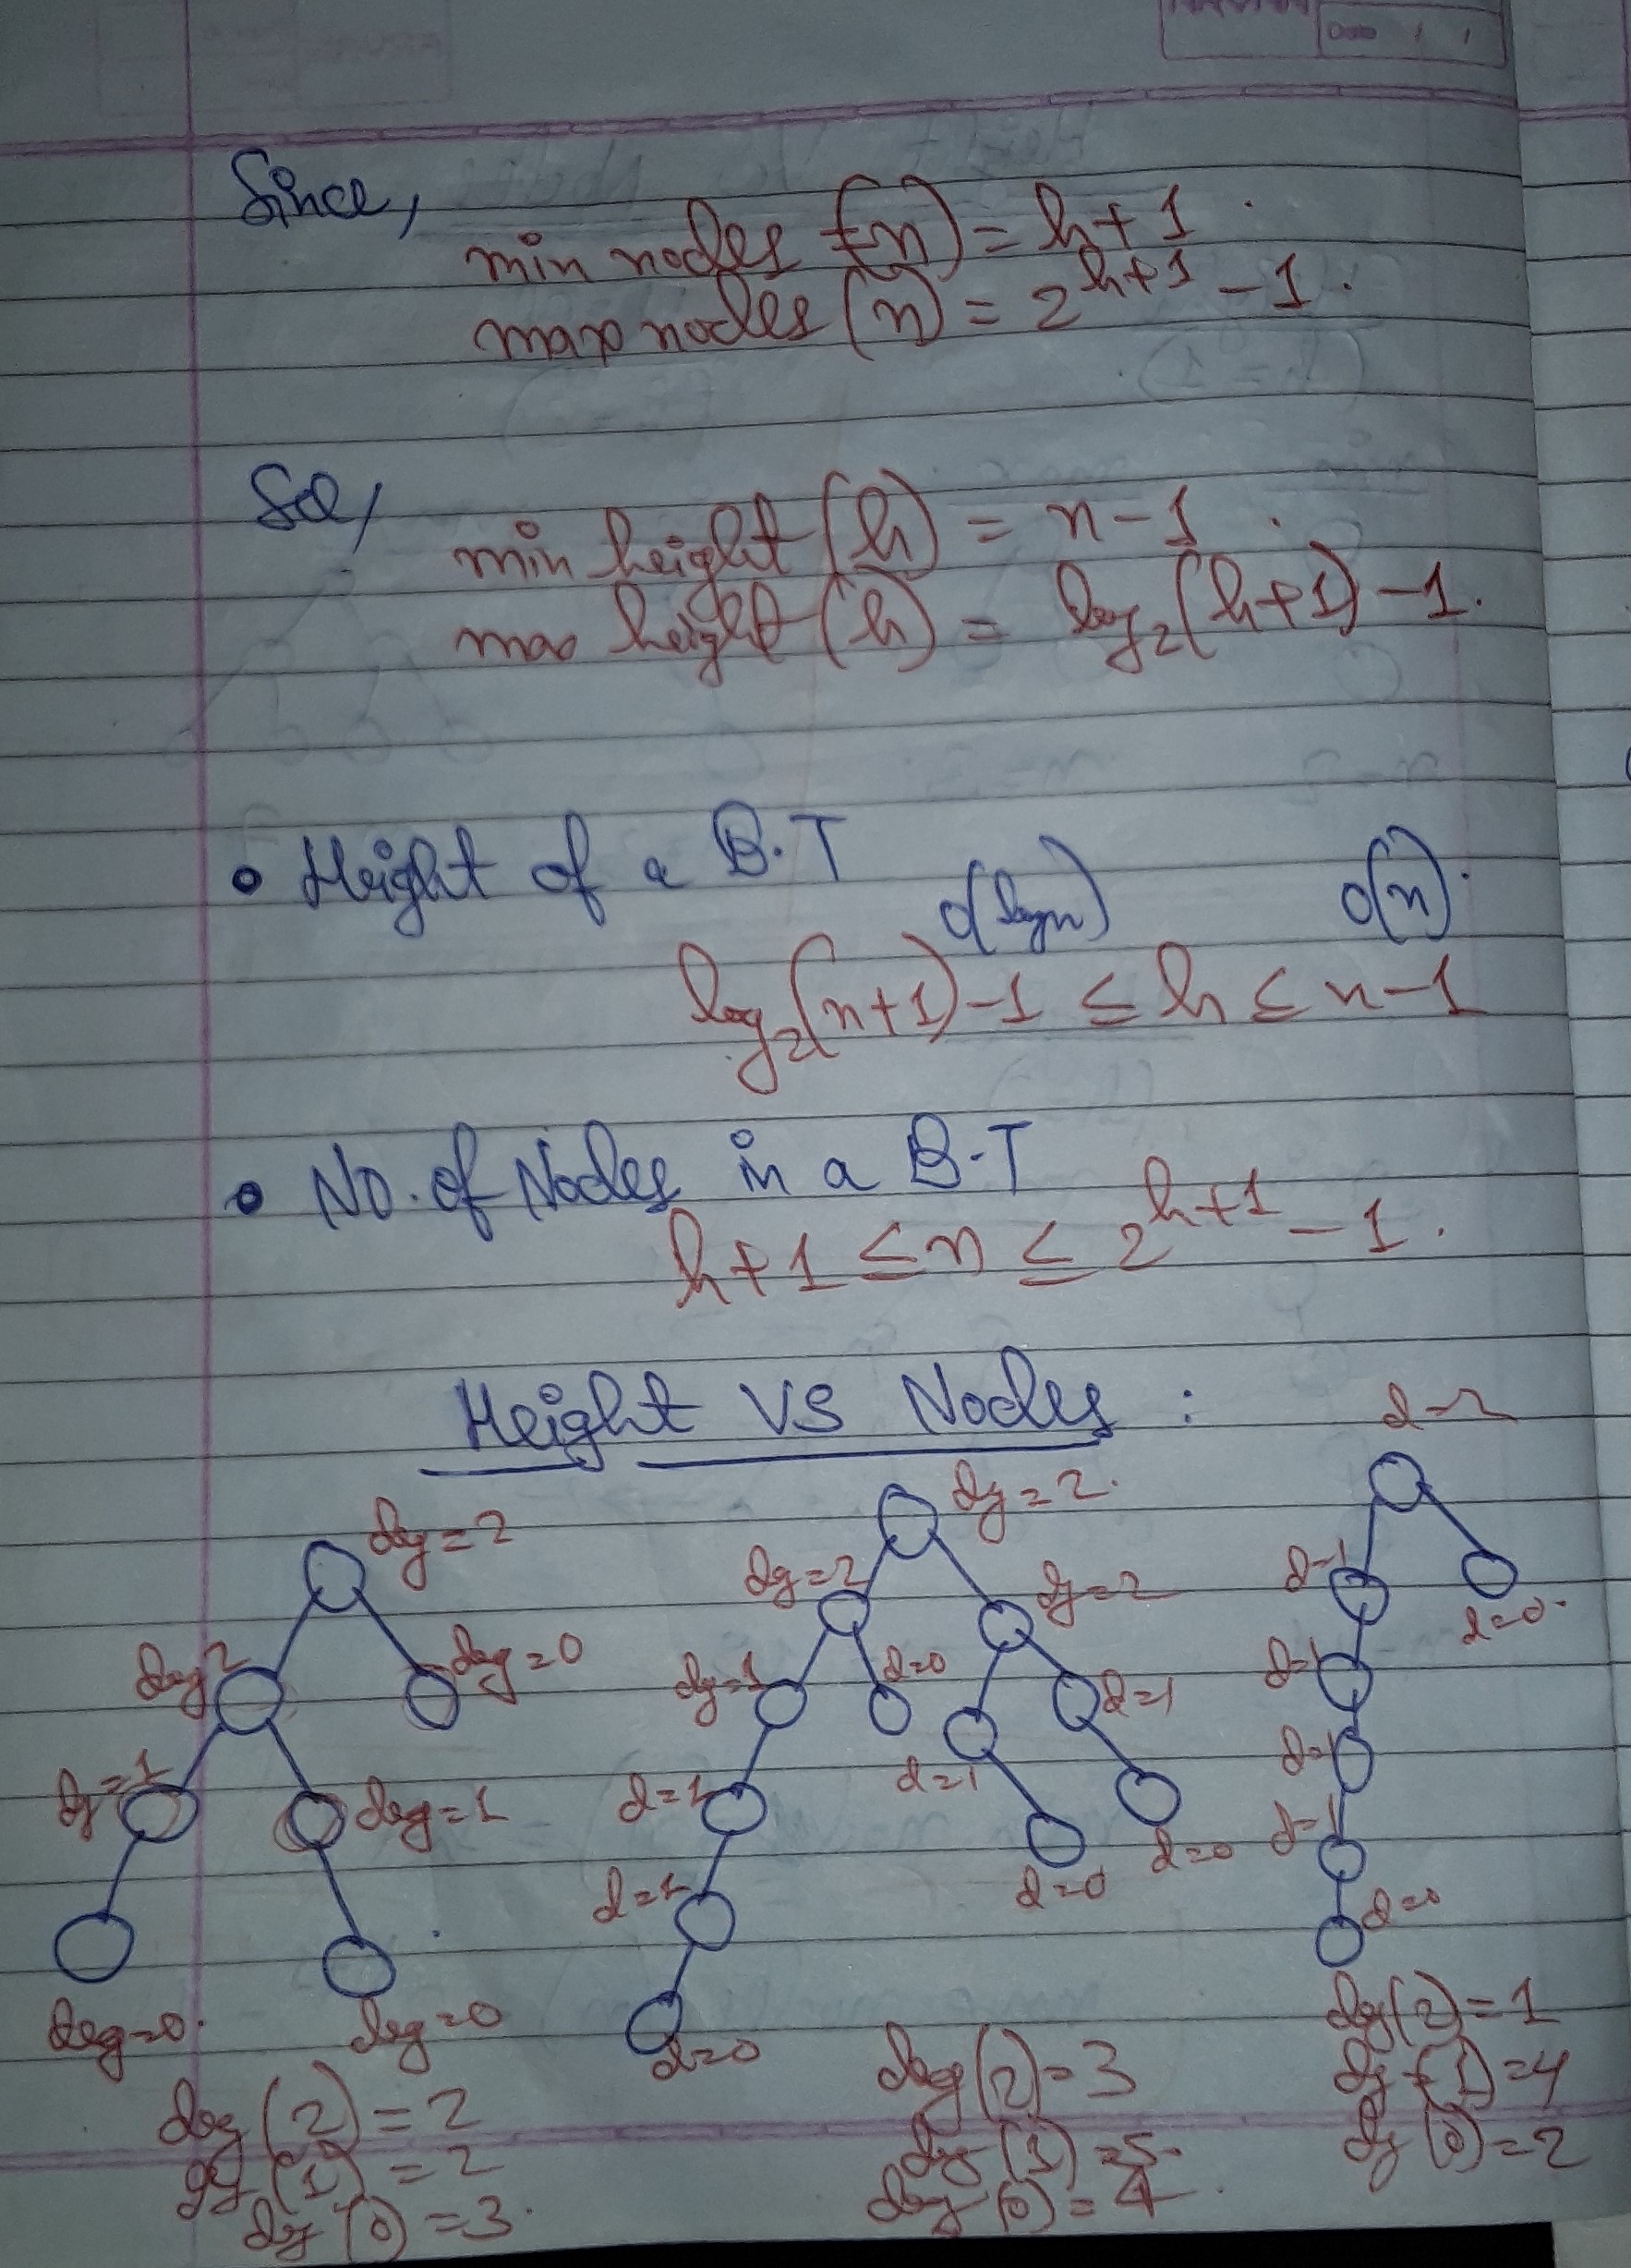 Date / /
Since,
min nodes (n) = h+1.
max nodes (n) = 2^{h+1} - 1.
So,
min height (h) = n-1.
max height (h) = log₂(h+1)-1.
• Height of a B.T
O(logn) O(n).
log₂(n+1)-1 ≤ h ≤ n-1
• No. of Nodes in a B.T
h+1 ≤ n ≤ 2^{h+1} - 1.
Height VS Nodes :
deg=2
deg 2
deg=0
deg=1
deg=1
deg=0.
deg=0
deg(2)=2
deg(1)=2
deg(0)=3.
deg=2.
deg=2
deg=2
deg=1
d=0
d=1
d=1
d=1
d=1
d=0
d=0
d=0
deg(2)=3
deg(1)=5.
deg(0)=4.
d=2
d=1
d=0.
d=1
d=1
d=1
d=0
deg(2)=1
deg(1)=4
deg(0)=2